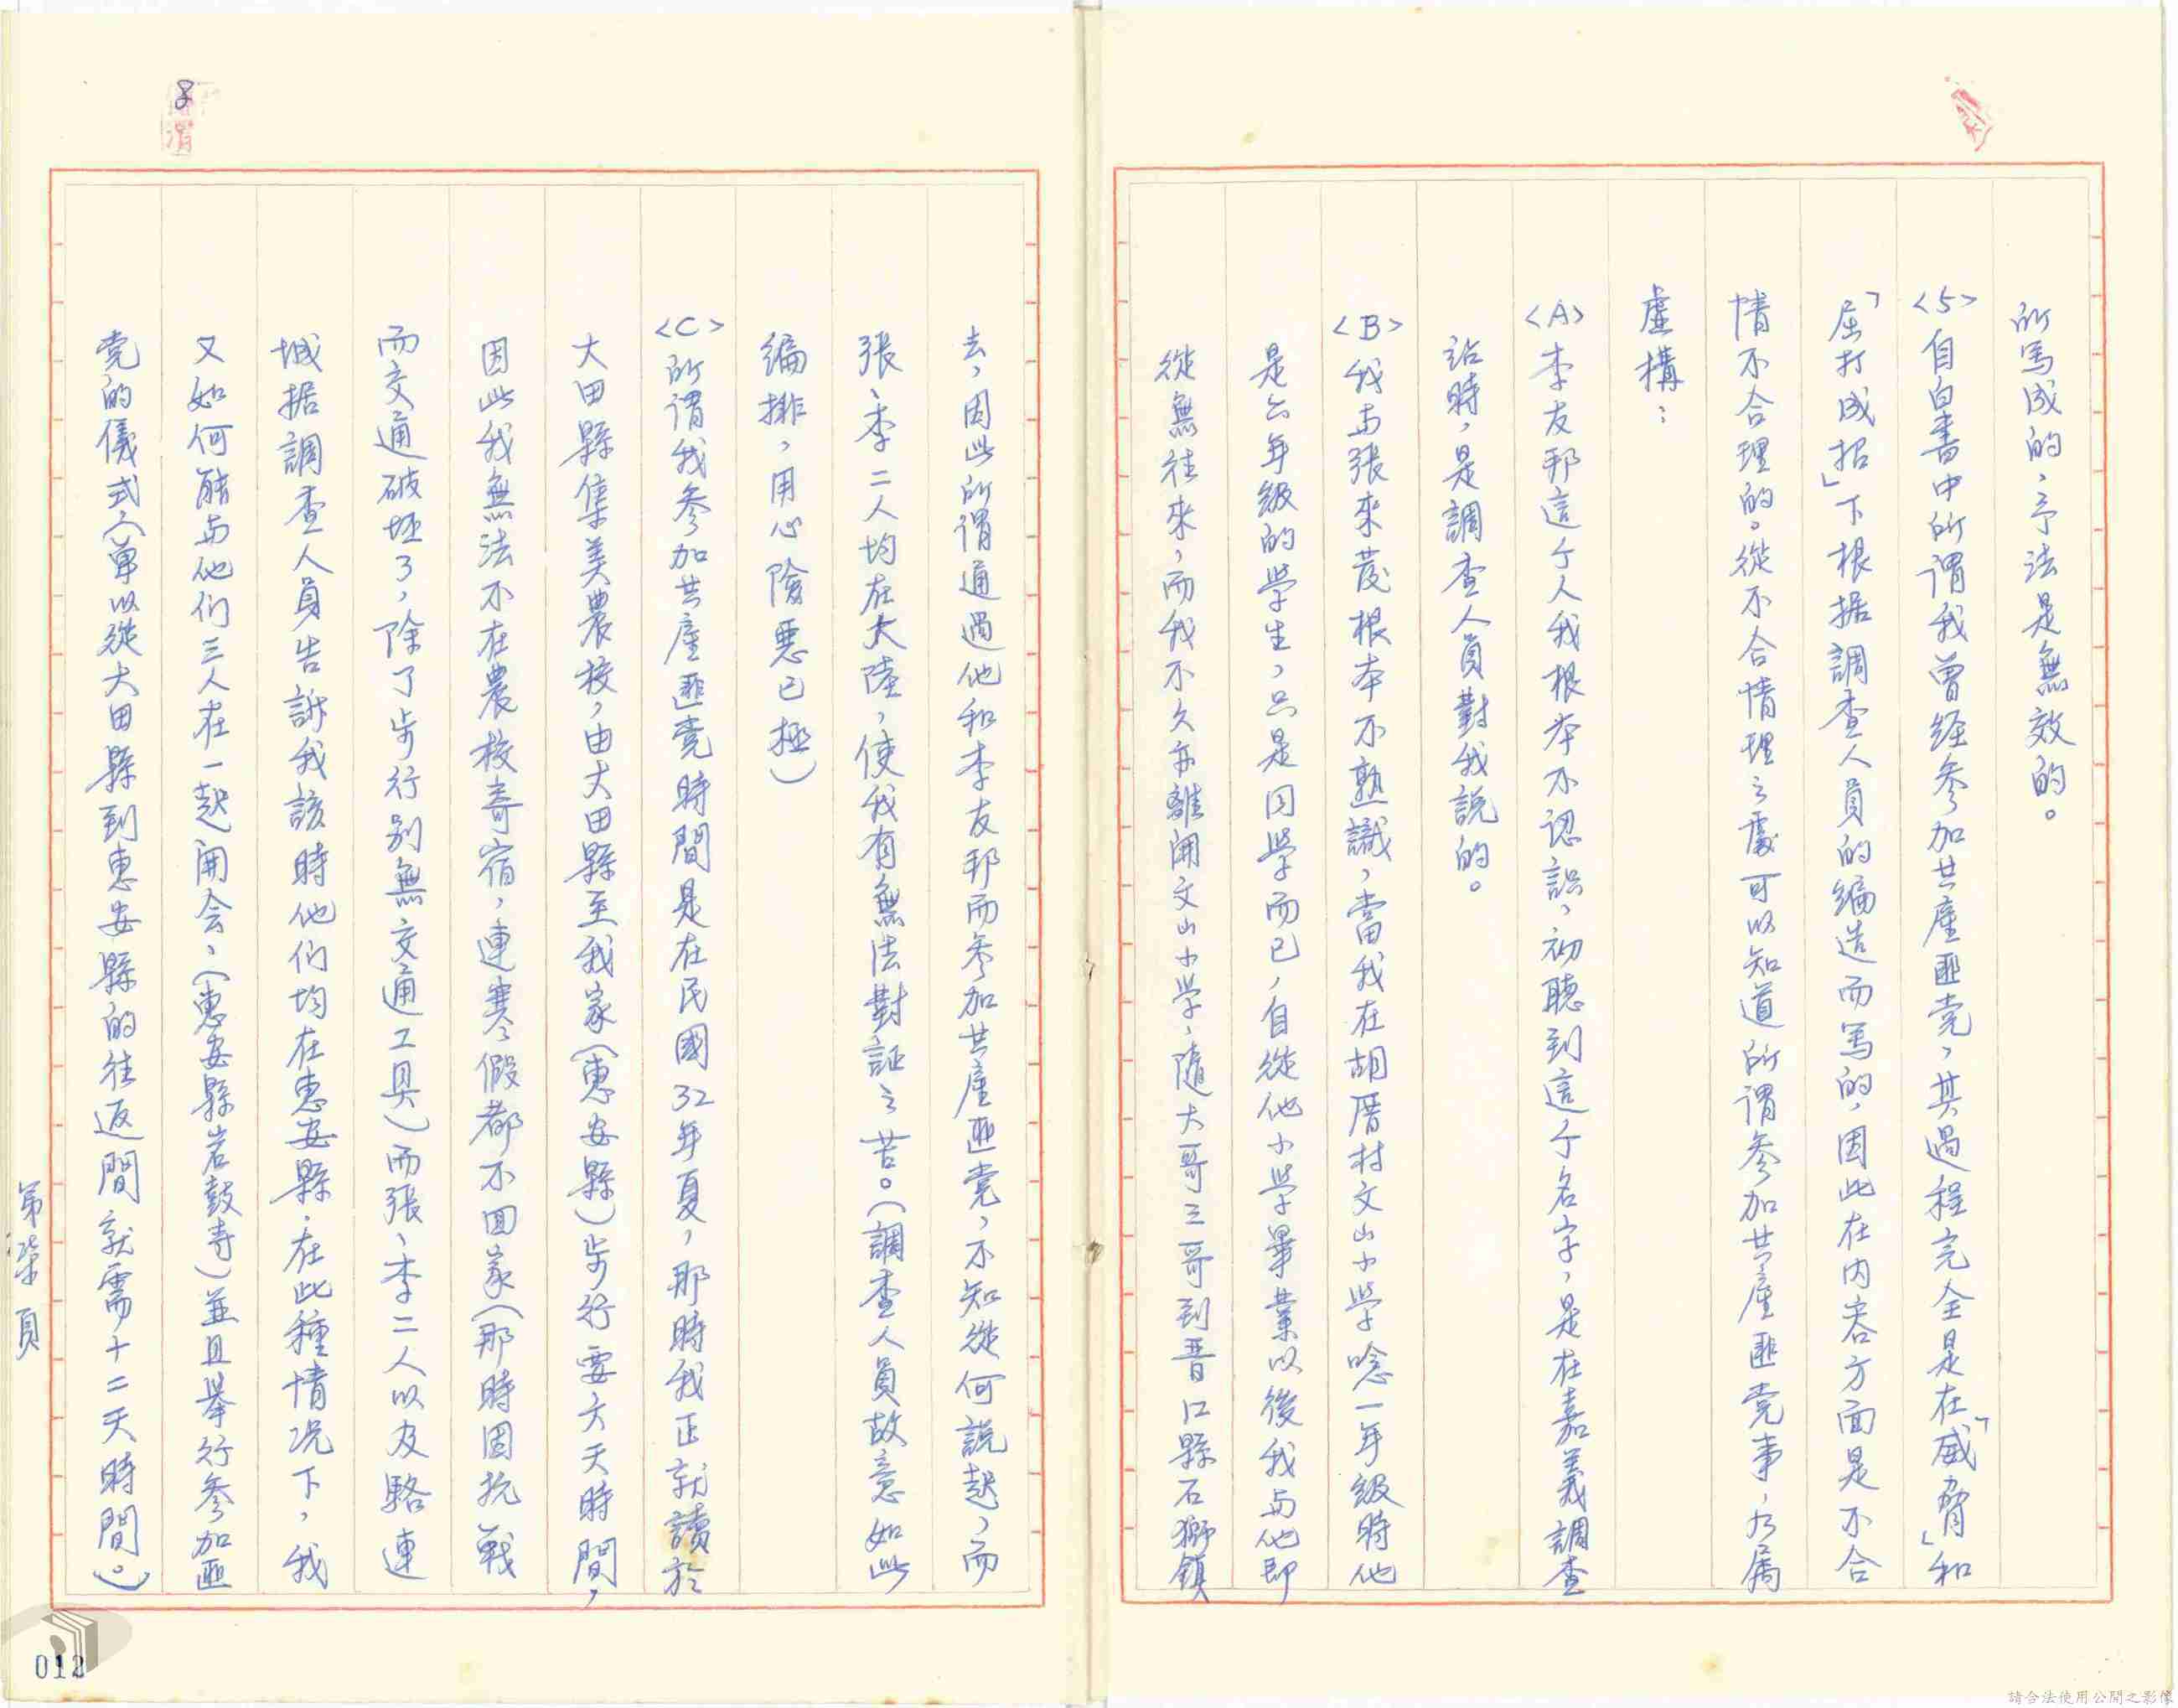 所写成的、于法是無效的。
<5>自白書中所謂我曾經参加共產匪党，其過程完全是在「威脅」和
「屈打成招」下根据調查人員的编造而写的，因此在内容方面是不合
情不合理的。從不合情理之處可以知道所謂参加共產匪党事，乃属
虛構：
<A>李友邦這个人我根本不認識，初聽到這个名字，是在嘉義調查
站時，是調查人員對我說的。
<B>我与張來茂根本不熟識，當我在胡厝村文山小學唸一年級時他
是六年級的學生，只是同學而已，自從他小學畢業以後我与他即
從無往來，而我不久亦離開文山小学，隨大哥三哥到晋江縣石獅鎮
去，因此所謂通過他和李友邦而参加共產匪党，不知從何說起，而
張、李二人均在大陸，使我有無法對証之苦。（調查人員故意如此
编排，用心險惡已極）
<C>所謂我参加共產匪党時間是在民國32年夏，那時我正就讀於
大田縣集美農校，由大田縣至我家（惠安縣）步行要六天時間，
因此我無法不在農校寄宿，連寒假都不回家（那時因抗戰
而交通破坏了，除了步行别無交通工具）而張、李二人以及駱連
城据調查人員告訴我該時他们均在惠安縣．在此種情况下，我
又如何能与他们三人在一起開会，（惠安縣岩鼓寺）並且举行参加匪
党的儀式？（單以從大田縣到惠安縣的往返間就需十二天時間。）
第柒頁
8
012
請合法使用公開之影像